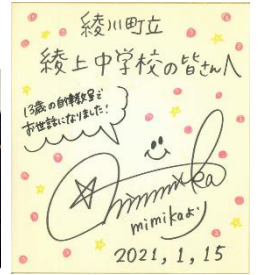 綾川町立
綾上中学校の皆さんへ
13歳の自律教室で
お世話になりました!
mimika
mimikaより
2021,1,15